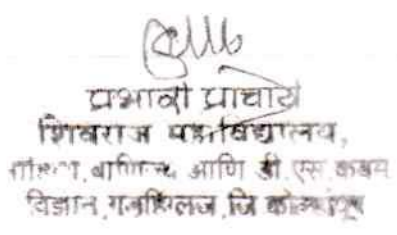 प्रभारी प्राचार्य
शिवराज महाविद्यालय,
आणि डी. एस. कदम
विज्ञान, गडहिंग्लज, जि. कोल्हापूर